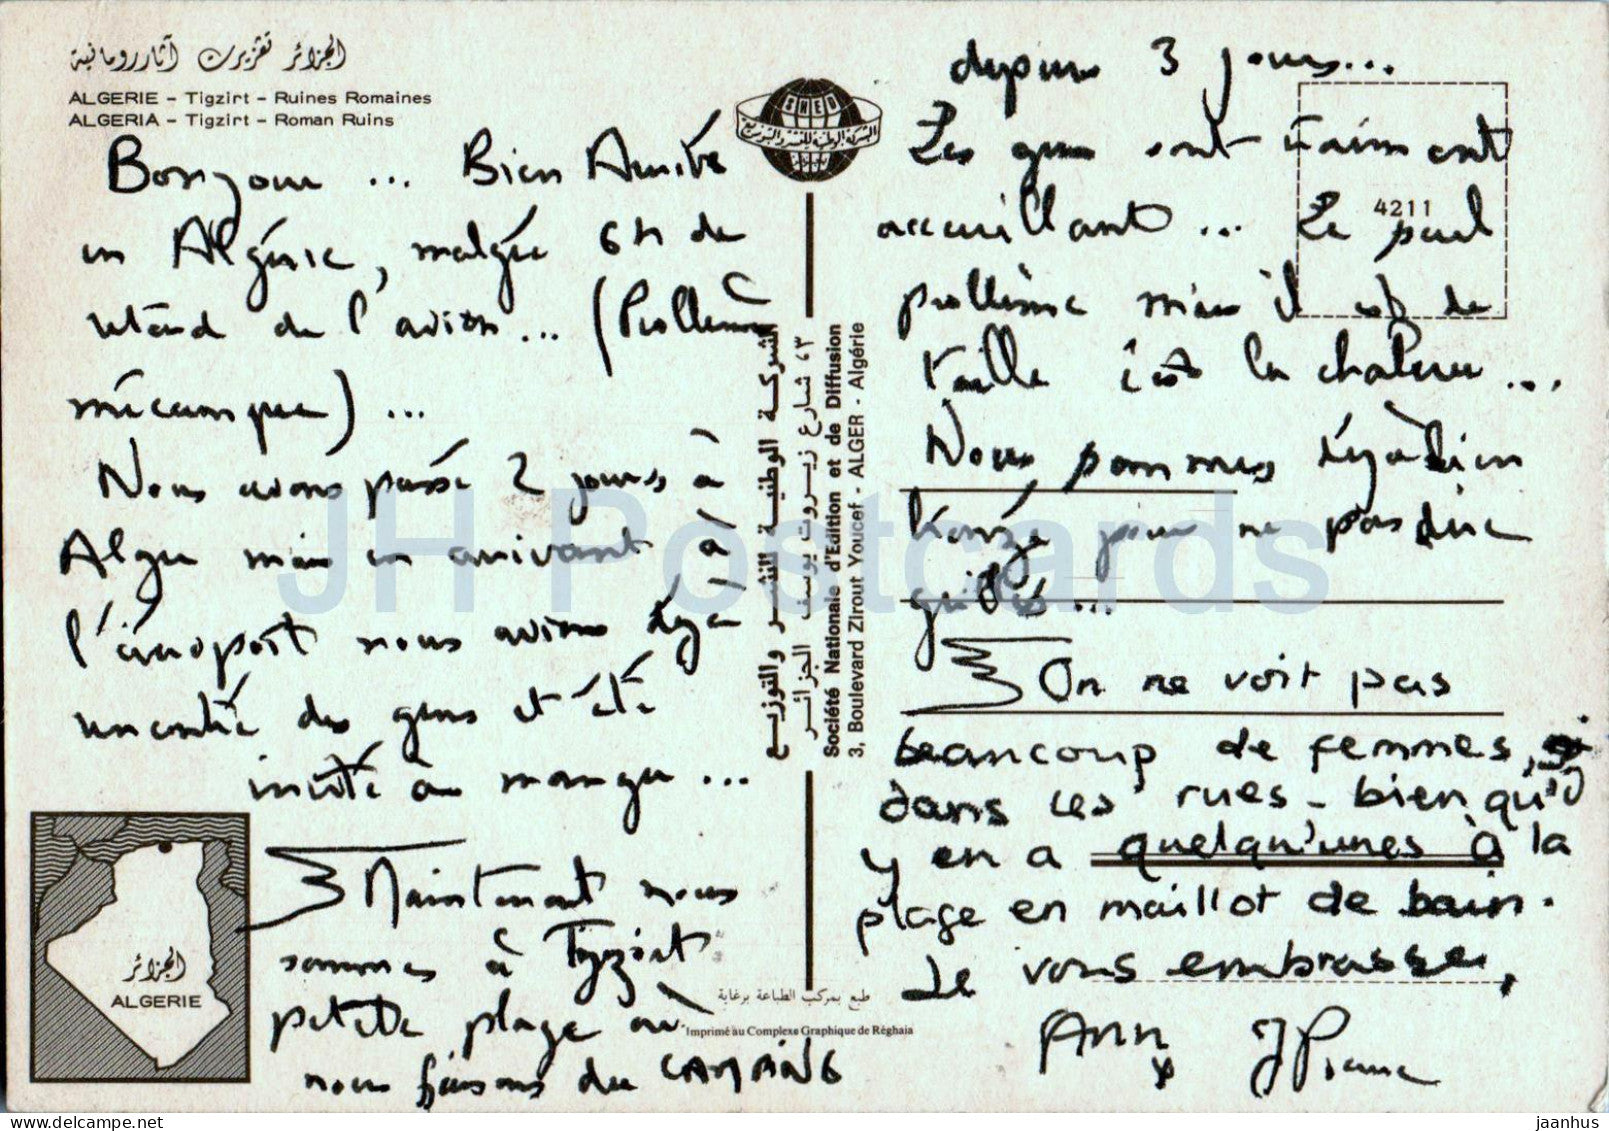 الجزائر تقزيرت آثار رومانية
ALGERIE - Tigzirt - Ruines Romaines
ALGERIA - Tigzirt - Roman Ruins
Bonjour ... Bien Arrivé
en Algérie, malgré 6H de
retard de l'avion... (Problème
mécanique) ...
Nous avons passé 2 jours à
Alger mais en arrivant à
l'aéroport nous avions déjà
rencontré des gens et été
invité à manger ...
Maintenant nous
sommes à Tigzirt
petite plage où
nous faisons du CAMPING
الجزائر
ALGERIE
SNED
الشركة الوطنية للنشر والتوزيع
الشركة الوطنية للنشر والتوزيع
٣، شارع زيروت يوسف الجزائر
Société Nationale d'Edition et de Diffusion
3, Boulevard Zirout Youcef - ALGER - Algérie
طبع بمركب الطباعة برغاية
Imprimé au Complexe Graphique de Réghaia
4211
depuis 3 jours...
Les gens sont vraiment
accueillant ... Le seul
problème mais il est de
taille c'est la chaleur ...
Nous sommes déjà bien
bronzé pour ne pas dire
grillés ...
On ne voit pas
beaucoup de femmes,
dans les rues - bien qu'il
y en a quelqu'unes à la
plage en maillot de bain.
Je vous embrasse,
Ann
JPierre
JH Postcards
jaanhus
www.delcampe.net